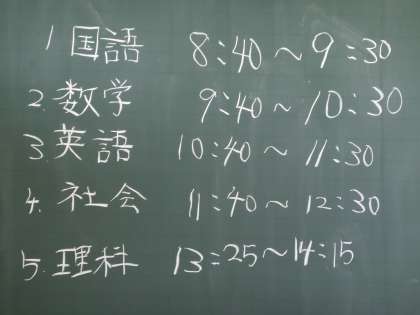 1 国語 8:40〜9:30
2. 数学 9:40〜10:30
3. 英語 10:40〜11:30
4. 社会 11:40〜12:30
5. 理科 13:25〜14:15